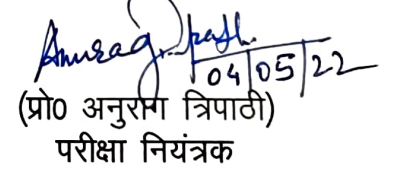 Anurag
04/05/22
(प्रो0 अनुराग त्रिपाठी)
परीक्षा नियंत्रक